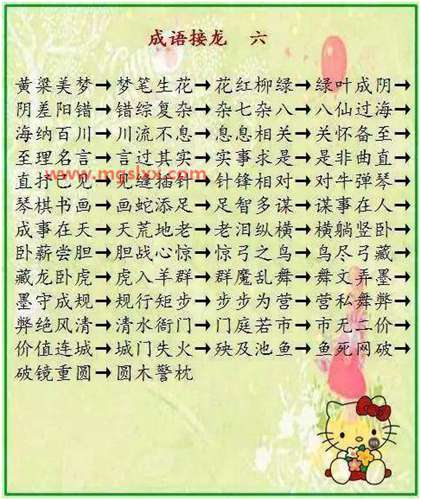 成语接龙 六
黄粱美梦→梦笔生花→花红柳绿→绿叶成阴→
阴差阳错→错综复杂→杂七杂八→八仙过海→
海纳百川→川流不息→息息相关→关怀备至→
至理名言→言过其实→实事求是→是非曲直→
www.mgslxx.com
直抒己见→见缝插针→针锋相对→对牛弹琴→
琴棋书画→画蛇添足→足智多谋→谋事在人→
成事在天→天荒地老→老泪纵横→横躺竖卧→
卧薪尝胆→胆战心惊→惊弓之鸟→鸟尽弓藏→
藏龙卧虎→虎入羊群→群魔乱舞→舞文弄墨→
墨守成规→规行矩步→步步为营→营私舞弊→
弊绝风清→清水衙门→门庭若市→市无二价→
价值连城→城门失火→殃及池鱼→鱼死网破→
破镜重圆→圆木警枕